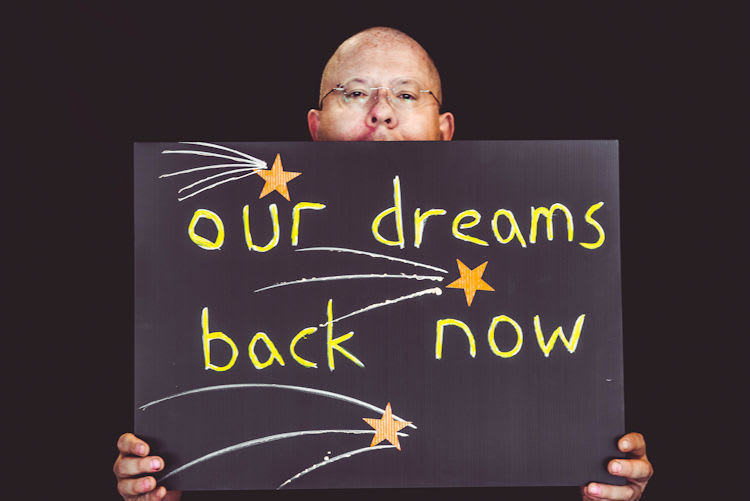 our dreams
back now